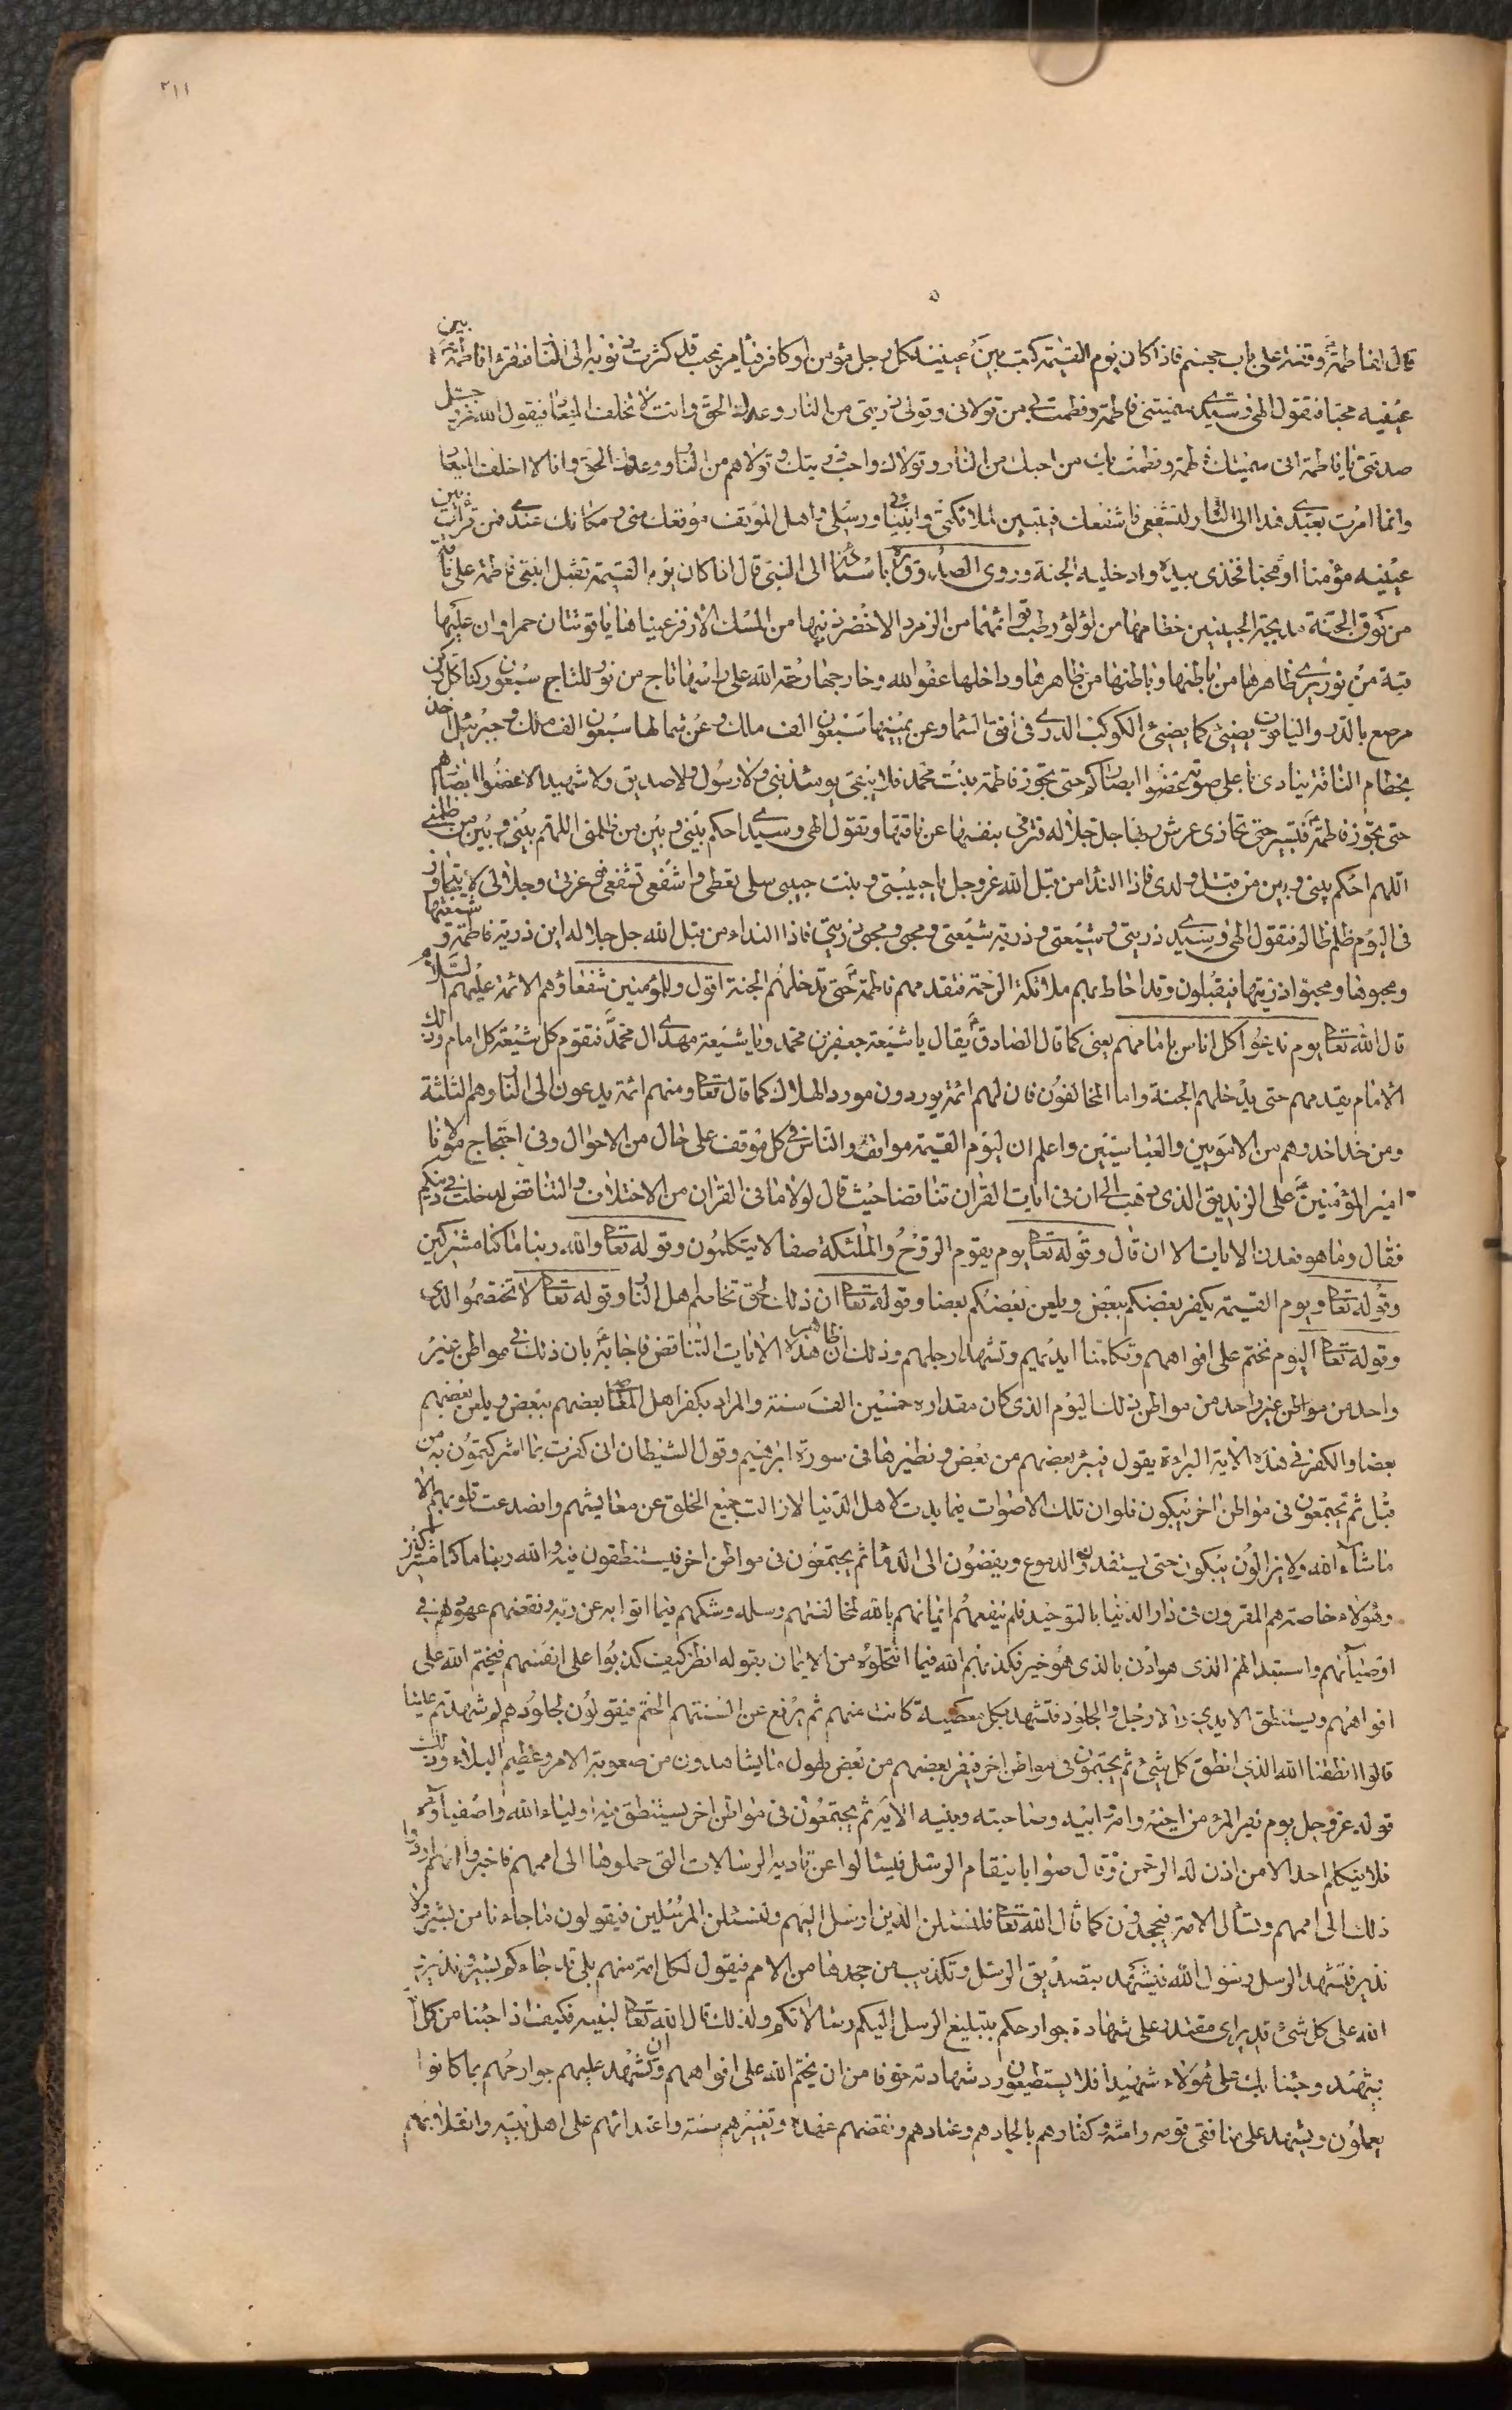 ٢١١
قال ان لفاطمة وقفة على باب جهنم فاذا كان يوم القيمة كتب بين عينى كل رجل مؤمن او كافر فيأمر بمحب قد كثرت ذنوبه الى النار فتقرء فاطمة بين
عينيه محبا فتقول الهى وسيدى سميتنى فاطمة وفطمت بى من تولانى وتولى ذريتى من النار ووعدك الحق وانت لا تخلف الميعاد فيقول الله عز وجل
صدقتى يا فاطمة انى سميتك فاطمة وفطمت بك من احبك من النار وتولاك واحب ذريتك وتولاهم من النار ووعدى الحق وانا لا اخلف الميعاد
وانما امرت بعبدى هذا الى النار لتشفعى فاشفعك فيتبين لملائكتى وانبيائى ورسلى واهل الموقف موقعك منى ومكانك عندى فمن قرأت بين
عينيه مؤمنا او محبا فخذى بيده وادخليه الجنة وروى الصدوق باسناده الى النبى قال اذا كان يوم القيمة تقبل ابنتى فاطمة على ناقة
من نوق الجنة مدبجة الجبينين خطامها من لؤلؤ رطب قوائمها من الزمرد الاخضر ذنبها من المسك الاذفر عيناها ياقوتتان حمراوان عليها
قبة من نور يرى ظاهرها من باطنها وباطنها من ظاهرها وداخلها عفو الله وخارجها رحمة الله على راسها تاج من نور للتاج سبعون ركنا كل ركن
مرصع بالدر والياقوت يضيئ كما يضيئ الكوكب الدرى فى افق السما وعن يمينها سبعون الف ملك وعن شمالها سبعون الف ملك وجبرئيل اخذ
بخطام الناقة ينادى باعلى صوته غضوا ابصاركم حتى تجوز فاطمة بنت محمد فلا يبقى يومئذ نبى ولا رسول ولا صديق ولا شهيد الا غضوا ابصارهم
حتى تجوز فاطمة فتسير حتى تحاذى عرش ربها جل جلاله فترمى بنفسها عن ناقتها وتقول الهى وسيدى احكم بينى وبين من ظلمنى اللهم بينى وبين من ظلمنى
اللهم احكم بينى وبين من قتل ولدى فاذا النداء من قبل الله عز وجل يا حبيبتى وبنت حبيبى سلى تعطى واشفعى تشفعى فو عزتى وجلالى لا يتجاوز
فى اليوم ظلم ظالم فتقول الهى وسيدى ذريتى وشيعتى وذرية شيعتى ومحبى ومحبى ذريتى فاذا النداء من قبل الله جل جلاله اين ذرية فاطمة وشيعتها
ومحبوها ومحبوا ذريتها فيقبلون وقد احاط بهم ملائكة الرحمة فتقدمهم فاطمة حتى تدخلهم الجنة اقول وللمؤمنين شفعاؤهم الائمة عليهم السلام
قال الله تعا يوم ندعوا كل اناس بامامهم يعنى كما قال الصادق يقال يا شيعة جعفر بن محمد ويا شيعة مهدى ال محمد فتقوم كل شيعة كل امام وذلك
الامام يقدمهم حتى يدخلهم الجنة واما المخالفون فان لهم ائمة يوردون مورد الهلاك كما قال تعا ومنهم ائمة يدعون الى النار وهم الثلثة
ومن حذا حذوهم من الامويين والعباسيين واعلم ان ليوم القيمة مواقف والناس فى كل موقف على حال من الاحوال وفى احتجاج مولانا
امير المؤمنين على الزنديق الذى ذهب الى ان فى ايات القران تناقضا حيث قال لولا ما فى القران من الاختلاف والتناقض لدخلت فى دينكم
فقال وما هو فعدد الايات الا ان قال وقوله تعا يوم يقوم الروح والملئكة صفا لا يتكلمون وقوله تعا والله ربنا ما كنا مشركين
وقوله تعا ويوم القيمة يكفر بعضكم ببعض ويلعن بعضكم بعضا وقوله تعا ان ذلك لحق تخاصم اهل النار وقوله تعا لا تختصموا لدى
وقوله تعا اليوم نختم على افواههم وتكلمنا ايديهم وتشهد ارجلهم وذلك ان ظاهر هذه الايات التناقض فاجابه بان ذلك فى مواطن غير
واحد من مواطن غير واحد من مواطن ذلك اليوم الذى كان مقداره خمسين الف سنة والمراد بكفر اهل المعاصى بعضهم ببعض ويلعن بعضهم
بعضا والكفر فى هذه الاية البراءة يقول فيبرء بعضهم من بعض ونظيرها فى سورة ابرهيم وقول الشيطان انى كفرت بما اشركتمون به من
قبل ثم يجتمعون فى مواطن اخر يبكون فلو ان تلك الاصوات فيها بدت لاهل الدنيا لازالت جميع الخلق عن معايشهم وانصدعت قلوبهم الا
ما شاء الله ولا يزالون يبكون حتى يستنفدوا الدموع ويفضون الى الدما ثم يجتمعون فى مواطن اخر فيستنطقون فيه والله ربنا ما كنا مشركين
وهؤلاء خاصة هم المقرون فى دار الدنيا بالتوحيد فلم ينفعهم ايمانهم بالله لمخالفتهم رسله وشكهم فيما اتوا به عن ربه ونقضهم عهودهم فى
اوصيائهم واستبدالهم الذى هو ادنى بالذى هو خير فكذبهم الله فيما انتحلوه من الايمان بقوله انظر كيف كذبوا على انفسهم فيختم الله على
افواههم ويستنطق الايدى والارجل والجلود فتشهد بكل معصية كانت منهم ثم يرفع عن السنتهم الختم فيقولون لجلودهم لم شهدتم علينا
قالوا انطقنا الله الذى انطق كل شئ ثم يجتمعون فى مواطن اخر فيفر بعضهم من بعض لهول ما يشاهدون من صعوبة الامر وعظيم البلاء وذلك
قوله عز وجل يوم يفر المرء من اخيه وامه وابيه وصاحبته وبنيه الاية ثم يجتمعون فى مواطن اخر يستنطق فيه اولياء الله واصفياؤه
فلا يتكلم احد الا من اذن له الرحمن وقال صوابا فيقام الرسل فيسئلوا عن تادية الرسالات التى حملوها الى اممهم فاخبروا انهم ادوا
ذلك الى اممهم وتسأل الامم فيجحدون كما قال الله تعا فلنسئلن الذين ارسل اليهم ولنسئلن المرسلين فيقولون ما جاءنا من بشير ولا
نذير فتشهد الرسل رسول الله فيشهد بتصديق الرسل وتكذيب من جحدها من الامم فيقول لكل امة منهم بلى قد جاءكم بشير ونذير
الله على كل شئ قدير اى مقتدر على شهادة جوارحكم بتبليغ الرسل اليكم رسالاتكم ولذلك قال الله تعا لنبيه فكيف اذا جئنا من كل امة
بشهيد وجئنا بك على هؤلاء شهيدا فلا يستطيعون رد شهادته خوفا من ان يختم الله على افواههم وان تشهد عليهم جوارحهم بما كانوا
يعملون ويشهد على منافقى قومه وامته وكفارهم بالحادهم وعنادهم ونقضهم عهده وتغييرهم سنته واعتدائهم على اهل بيته وانقلابهم